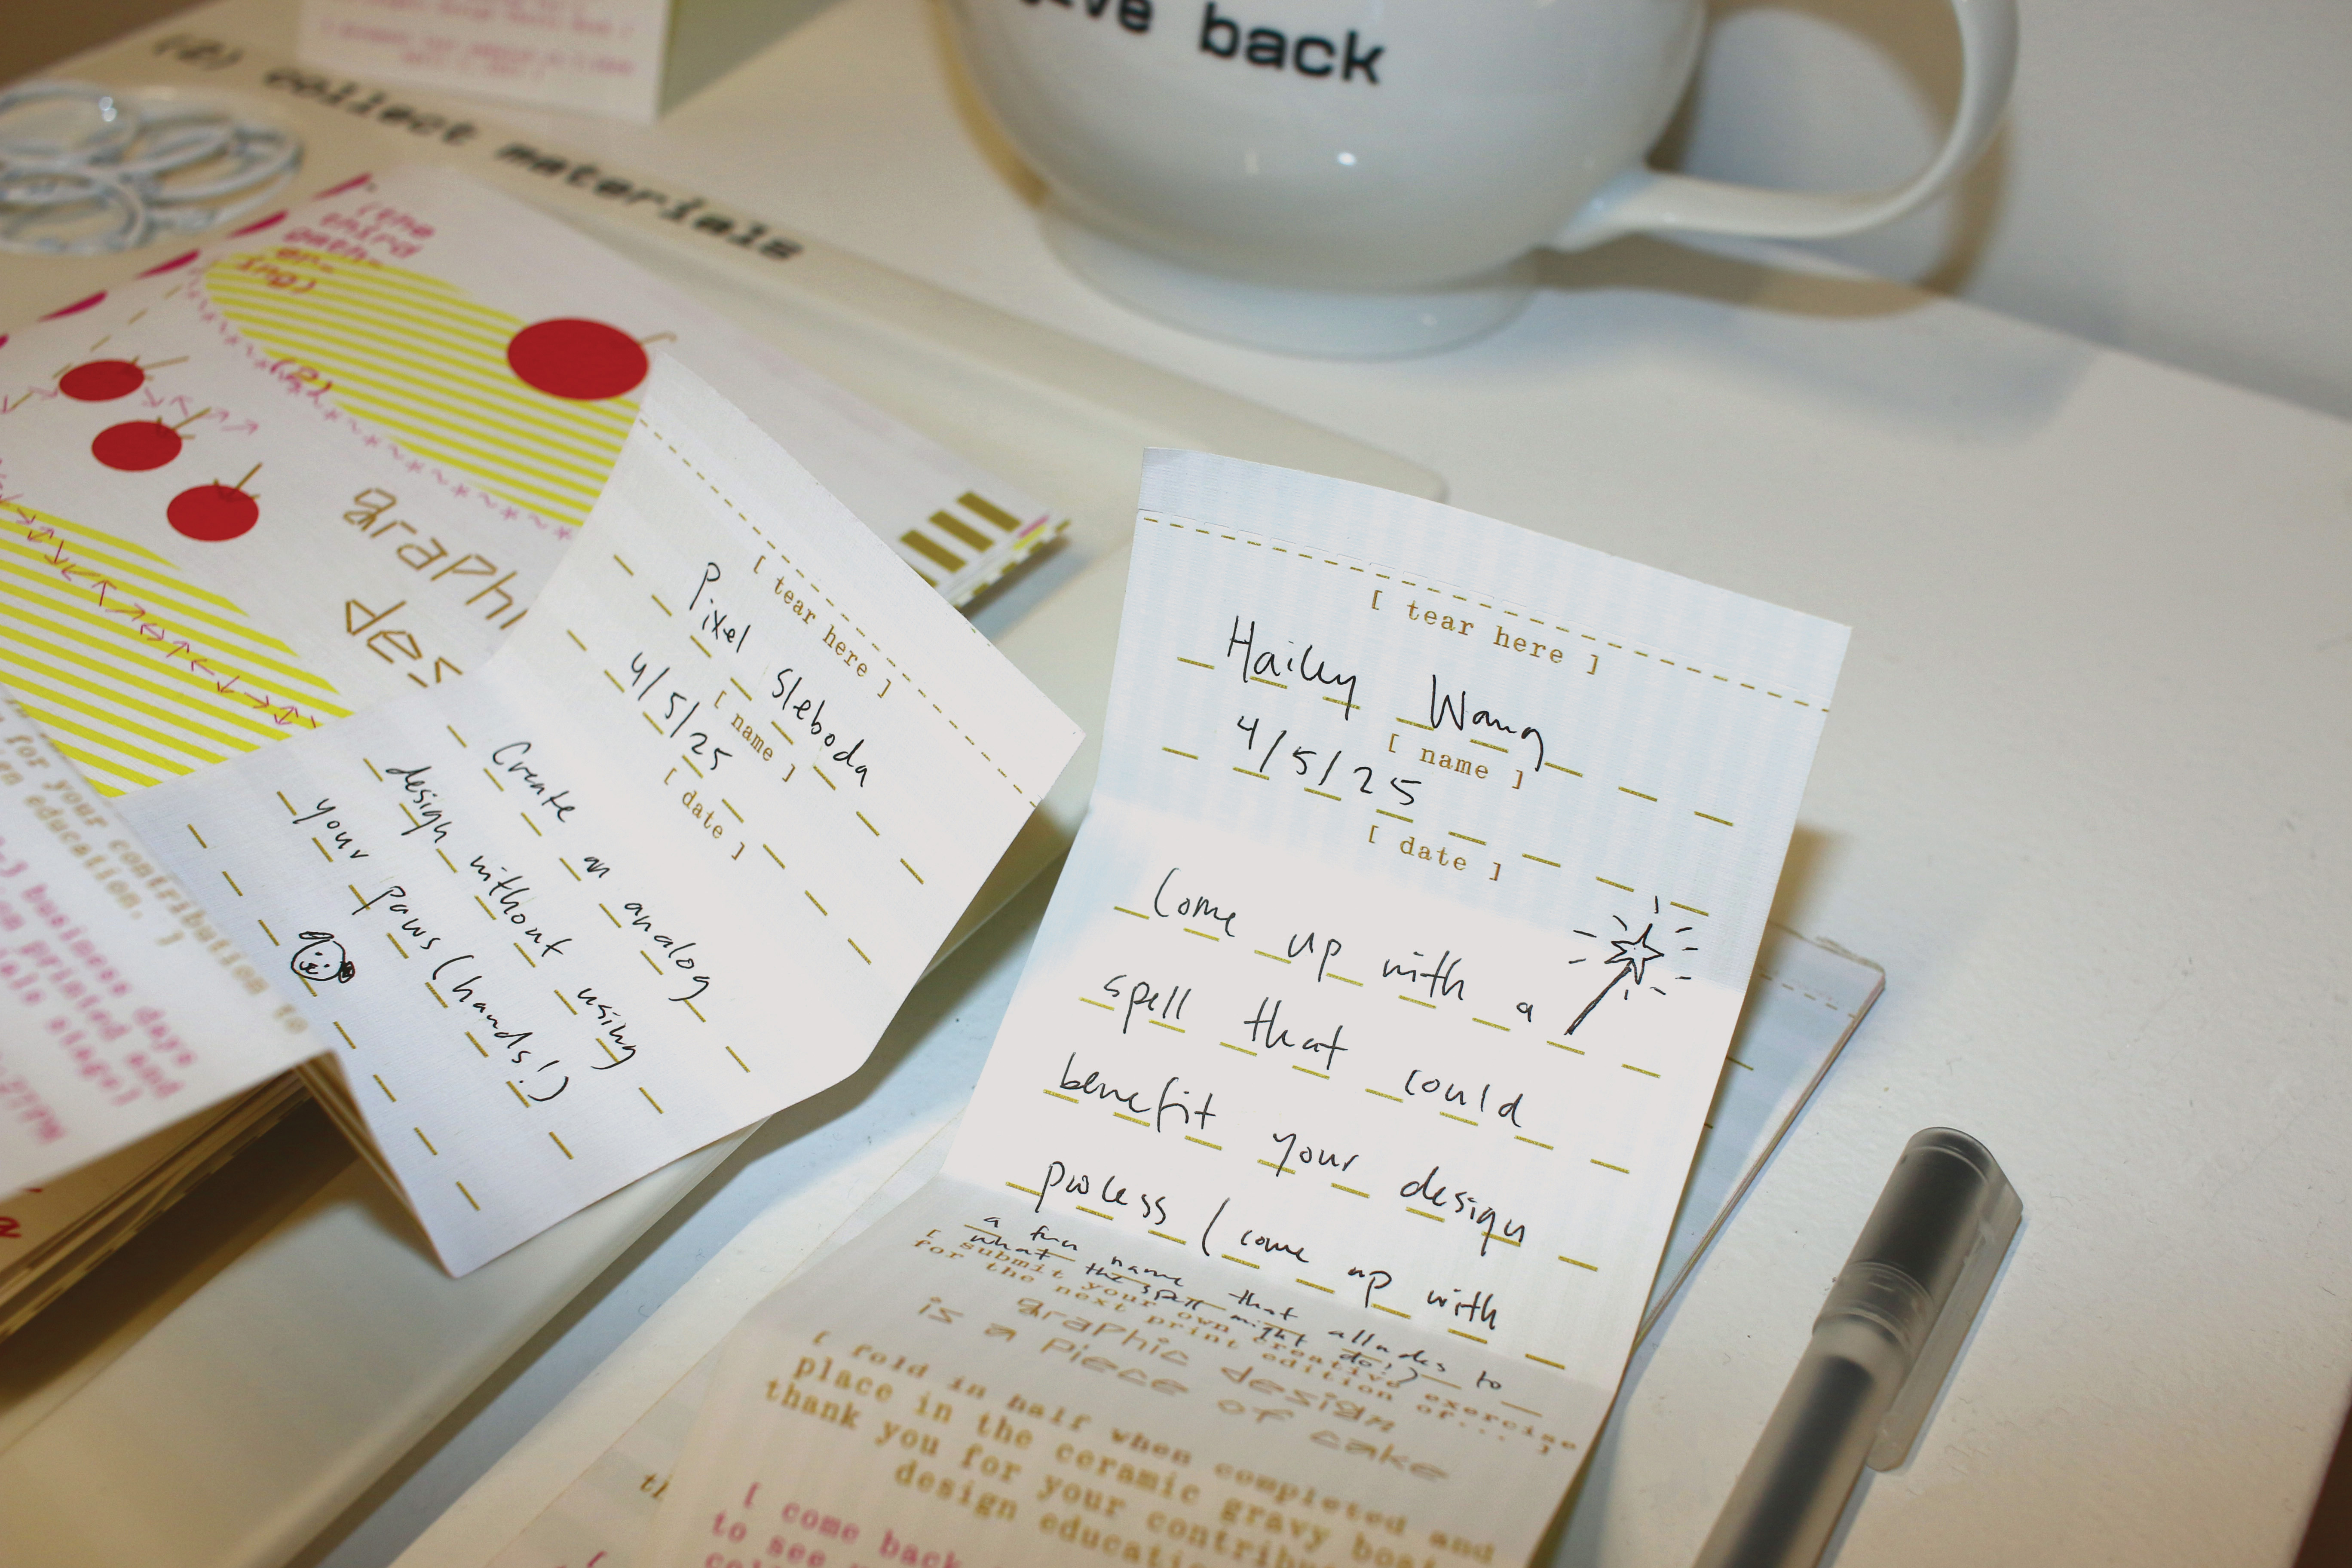 back
(2) collect materials
(the
third
gath-
er-
ing)
(2)
graphi
des
[ tear here ]
Pixel Sleboda
[ name ]
4/5/25
[ date ]
Create an analog
design without using
your paws (hands!)
for your contribution to
en education. ]
business days
printed and
[ tear here ]
Hailey Wang
[ name ]
4/5/25
[ date ]
Come up with a
spell that could
benefit your design
process (come up with
a fun name that alludes to
what the spell might do!)
[ submit your own creative exercise
for the next print edition of... ]
graphic design
is a piece of cake
[ fold in half when completed and
place in the ceramic gravy boat
thank you for your contribu
design educatio
[ come back
to see